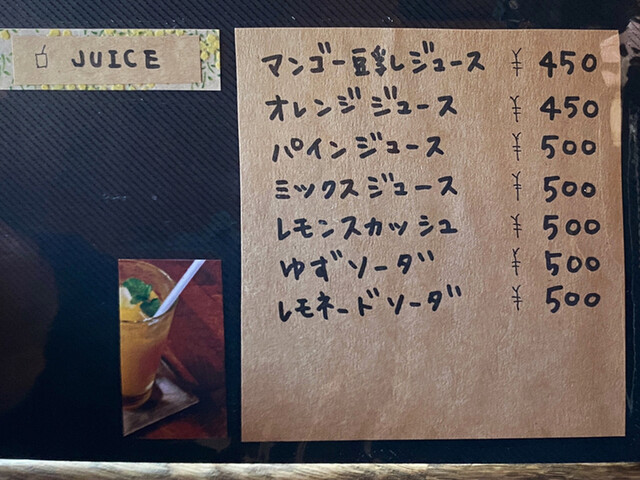 JUICE
マンゴー豆乳ジュース ¥ 450
オレンジジュース ¥ 450
パインジュース ¥ 500
ミックスジュース ¥ 500
レモンスカッシュ ¥ 500
ゆずソーダ ¥ 500
レモネードソーダ ¥ 500